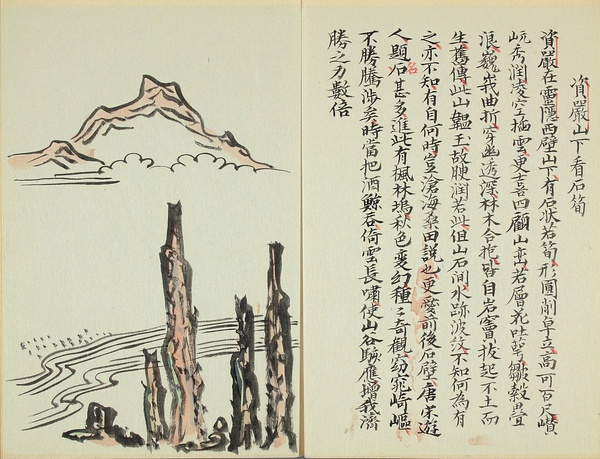 資嚴山下看石筍
資嚴在靈隱西壁山下有石狀若筍形圓削卓立高可百尺巑
岏秀潤凌空插雲更喜四顧山巒若層花吐萼皺縠疊
浪巍峩曲折穿幽透深林木合抱皆自岩竇拔起不土而
生舊傳此山韞玉故腴潤若此但山石間水跡波紋不知何為有
之亦不知有自何時豈滄海桑田說也更愛前後石壁唐宋遊
人題石甚多進此有楓林塢秋色變幻種〻奇觀窈窕崎嶇
名
不勝騰涉矣時當把酒鯨吞倚雲長嘯使山谷駭應增我濟
勝之力數倍